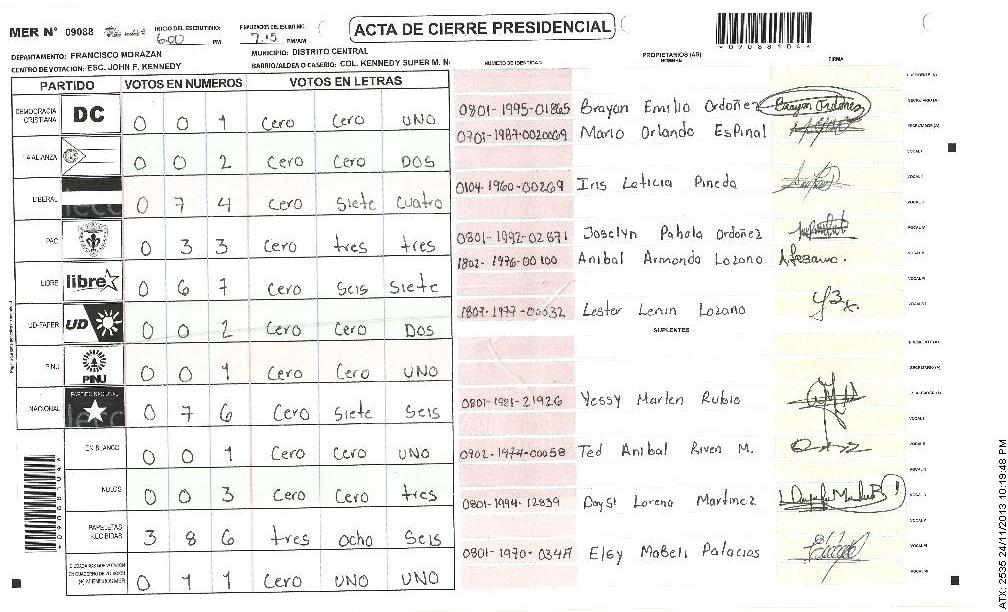 MER N° 09088
INICIO DEL ESCRUTINIO:
6:00 PM
FINALIZACION DEL ESCRUTINIO:
7:15 PM/AM
ACTA DE CIERRE PRESIDENCIAL
DEPARTAMENTO: FRANCISCO MORAZAN
MUNICIPIO: DISTRITO CENTRAL
CENTRO DE VOTACION: ESC. JOHN F. KENNEDY
BARRIO/ALDEA O CASERIO: COL. KENNEDY SUPER M. N
PARTIDO VOTOS EN NUMEROS VOTOS EN LETRAS
DEMOCRACIA CRISTIANA DC 0 0 1 Cero Cero UNO
LA ALIANZA 0 0 2 Cero Cero DOS
LIBERAL 0 7 4 Cero Siete Cuatro
PAC 0 3 3 Cero tres tres
LIBRE libre 0 6 7 Cero Seis Siete
UD-FAPER UD 0 0 2 Cero Cero DOS
PINU PINU 0 0 1 Cero Cero UNO
NACIONAL PARTIDO NACIONAL 0 7 6 Cero Siete Seis
EN BLANCO 0 0 1 Cero Cero UNO
NULOS 0 0 3 Cero Cero tres
PAPELETAS RECIBIDAS 3 8 6 tres ocho Seis
0 1 1 Cero UNO UNO
NUMERO DE IDENTIDAD
PROPIETARIOS (AS)
NOMBRE
FIRMA
0801-1995-01865 Brayan Emilio Ordoñez Brayan Ordoñez
0701-1987-0020069 Mario Orlando Espinal
0104-1960-00269 Iris Leticia Pineda
0801-1992-02871 Joselyn Pahola Ordoñez
1802-1976-00100 Anibal Armando Lozano
1807-1977-00032 Lester Lenin Lozano
SUPLENTES
0801-1981-21926 Yessy Marlen Rubio
0902-1974-00058 Ted Anibal M.
0801-1994-12839 Lorena Martinez
0801-1970- Elsy Palacios
ATX: 2535 24/11/2013 10:19:48 PM